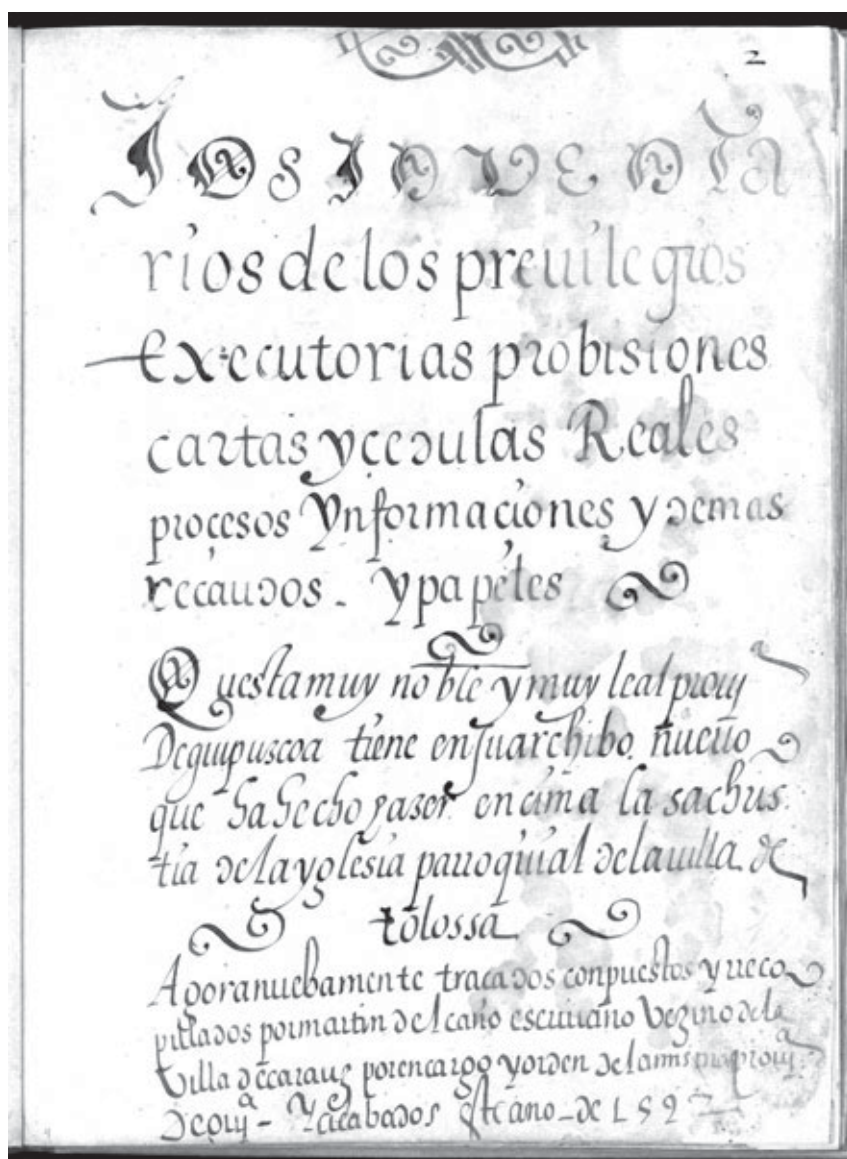 2
Los Inuenta
rios de los preuilegios
Executorias probisiones
cartas y çedulas Reales
proçesos Ynformaciones y demas
recaudos. Y papeles
Questa muy noble y muy leal prouª
De guipuscoa tiene en su archibo nueuo
que ha hecho hazer ençima la sachris
tia de la yglesia parroquial de la uilla de
tolossa
Agora nuebamente traçados conpuestos y reco
pillados por martin del caño escriuano vezino de la
Villa de çarauz por encargo y orden de la misma prouª
Y acabados este año de 159